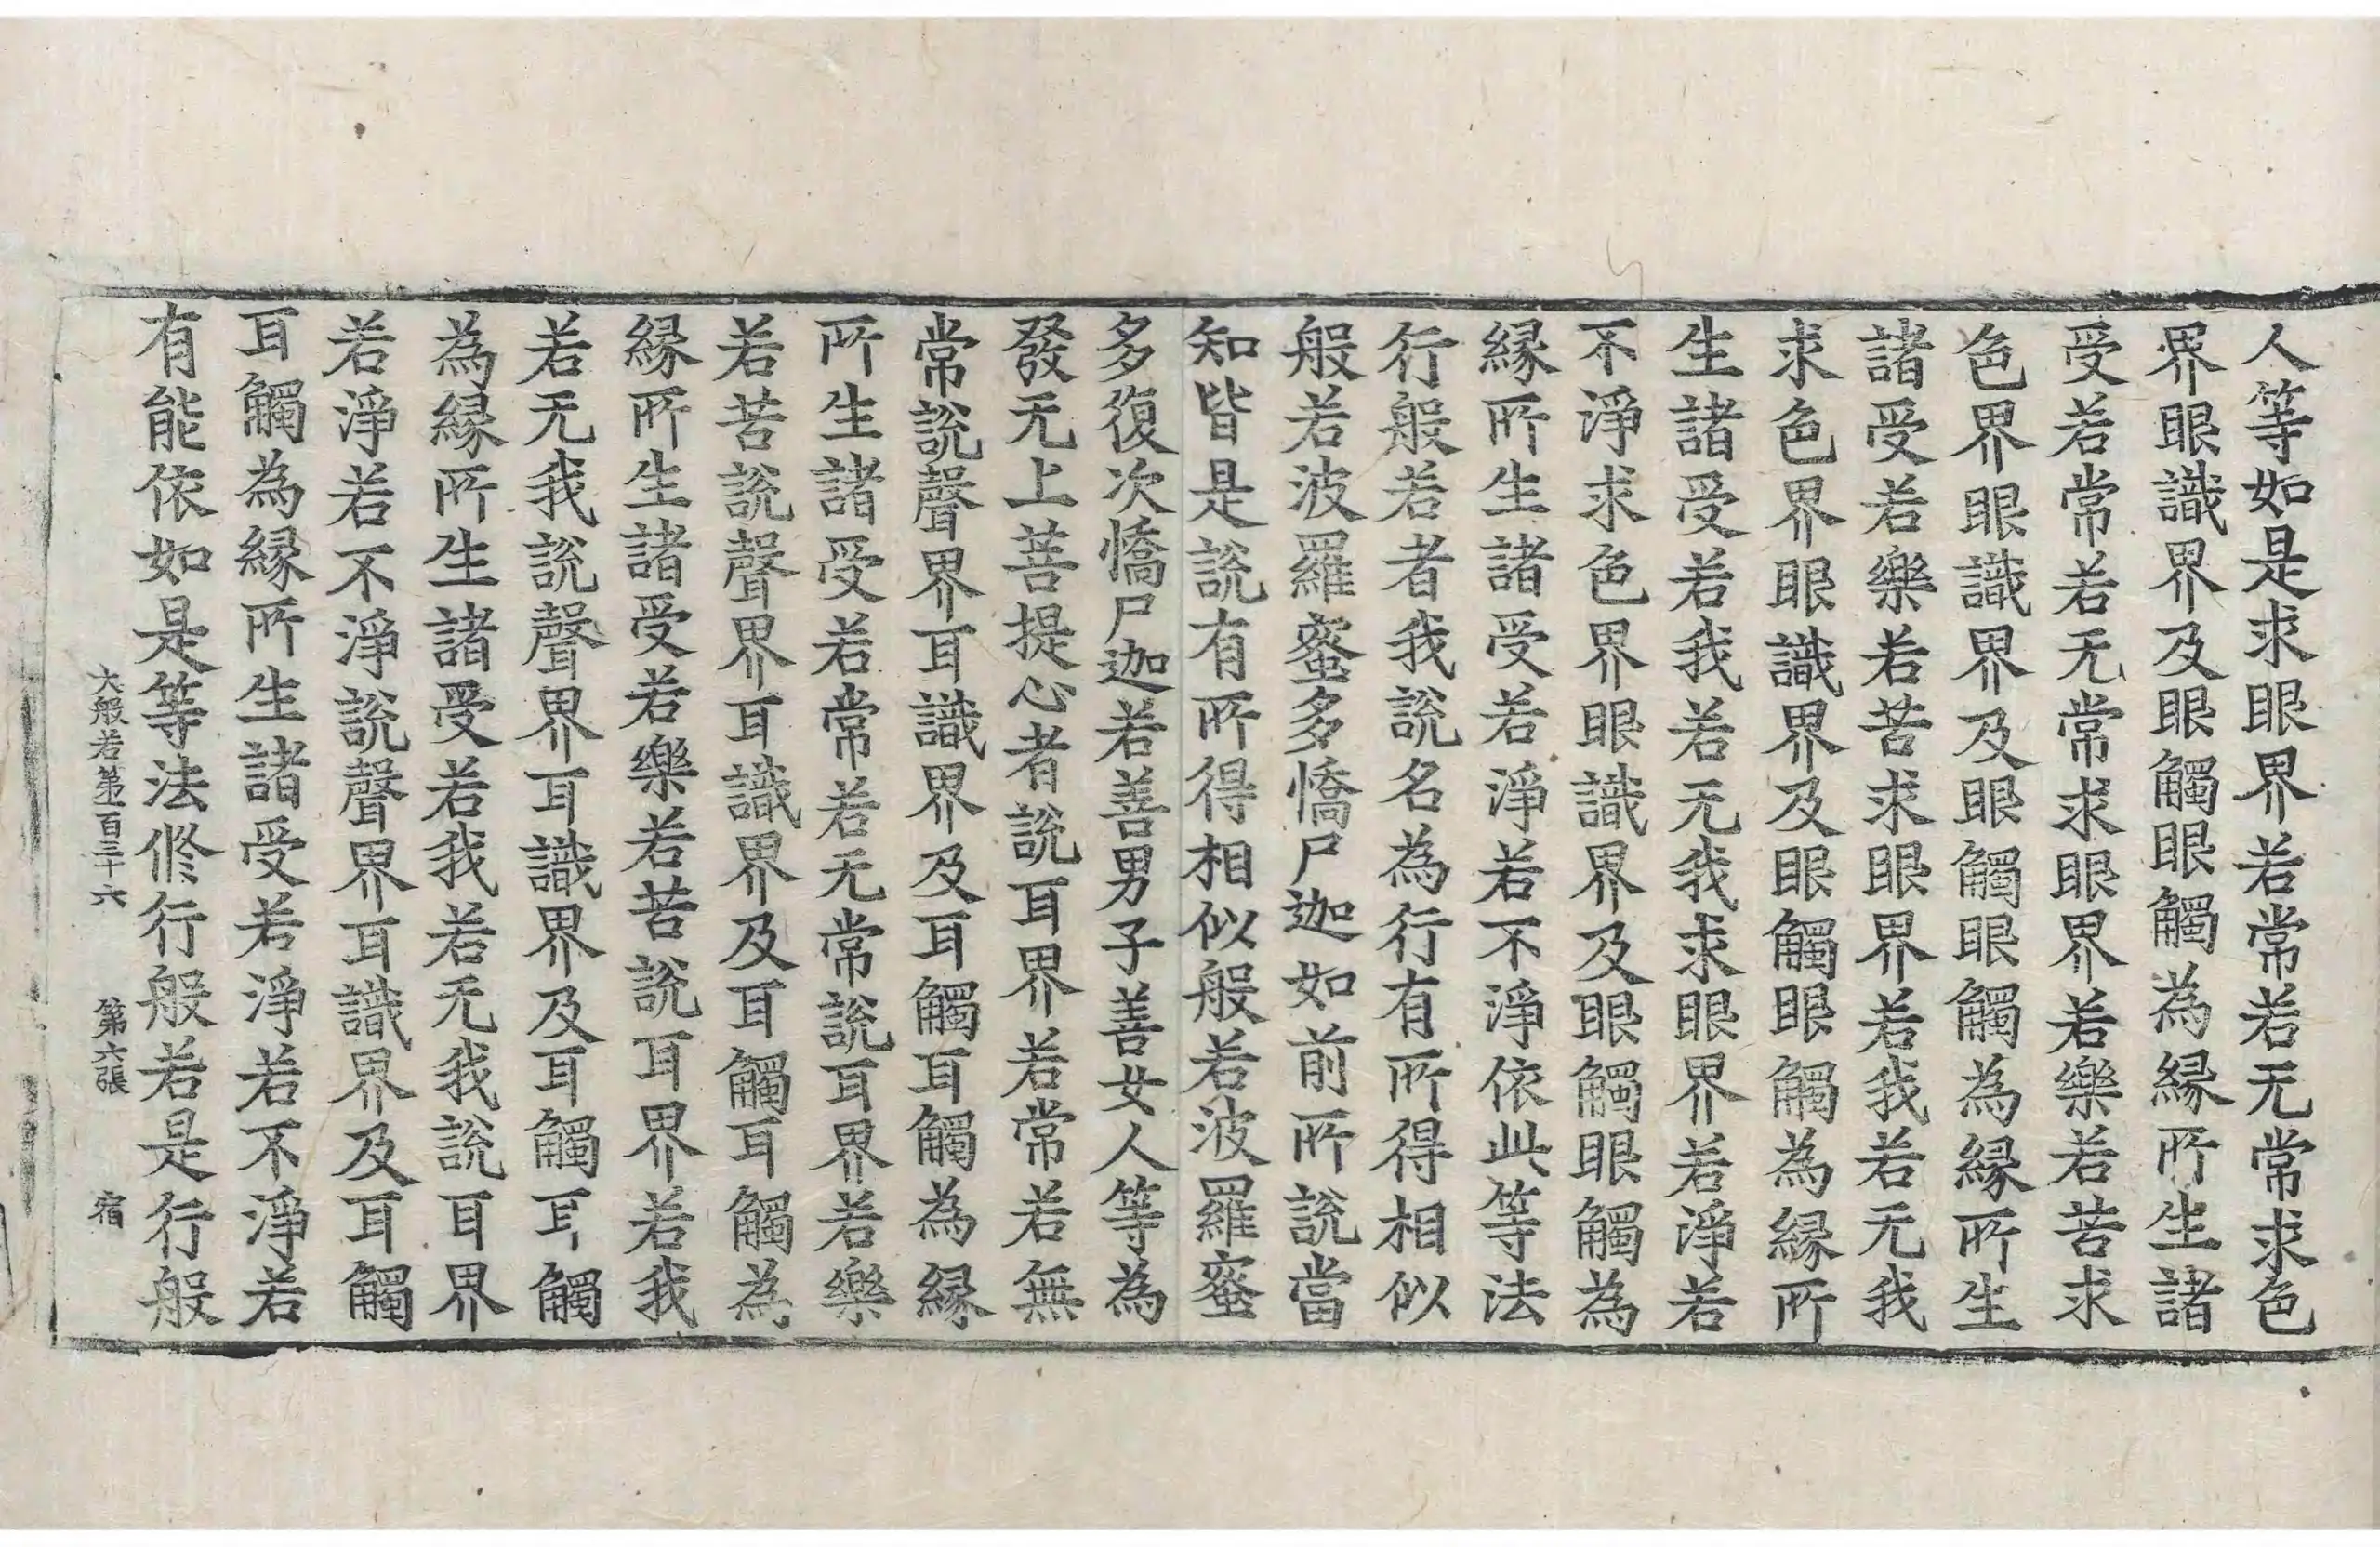 人等如是求眼界若常若无常求色
界眼識界及眼觸眼觸為緣所生諸
受若常若无常求眼界若樂若苦求
色界眼識界及眼觸眼觸為緣所生
諸受若樂若苦求眼界若我若无我
求色界眼識界及眼觸眼觸為緣所
生諸受若我若无我求眼界若淨若
不淨求色界眼識界及眼觸眼觸為
緣所生諸受若淨若不淨依此等法
行般若者我說名為行有所得相似
般若波羅蜜多憍尸迦如前所說當
知皆是說有所得相似般若波羅蜜
多復次憍尸迦若善男子善女人等為
發无上菩提心者說耳界若常若無
常說聲界耳識界及耳觸耳觸為緣
所生諸受若常若无常說耳界若樂
若苦說聲界耳識界及耳觸耳觸為
緣所生諸受若樂若苦說耳界若我
若无我說聲界耳識界及耳觸耳觸
為緣所生諸受若我若无我說耳界
若淨若不淨說聲界耳識界及耳觸
耳觸為緣所生諸受若淨若不淨若
有能依如是等法修行般若是行般
大般若第一百三十六 第六張 宿